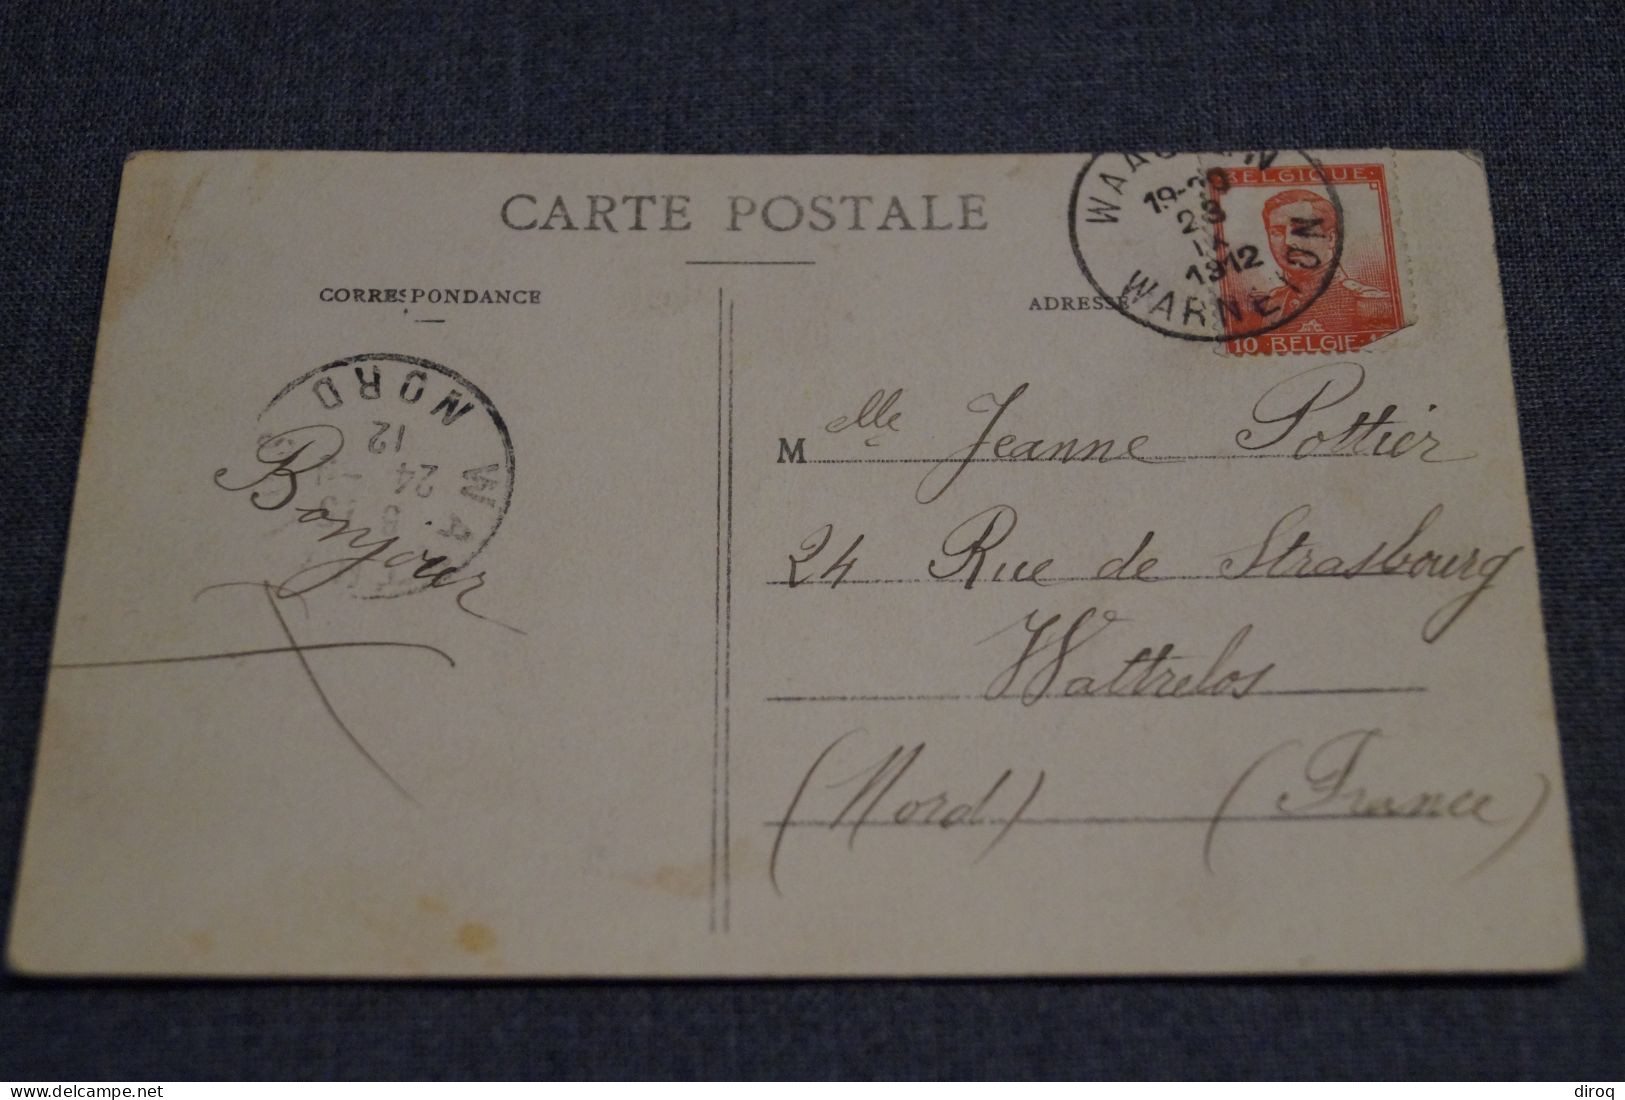 CARTE POSTALE
CORRESPONDANCE
ADRESSE
WAASTEN
19-20
23
IX
1912
WARNETON
BELGIQUE
10 BELGIE
NORD
12
24
WA
Bonjour
Mlle Jeanne Pottier
24 Rue de Strasbourg
Wattrelos
(Nord) (France)
Delcampe.net
diroq